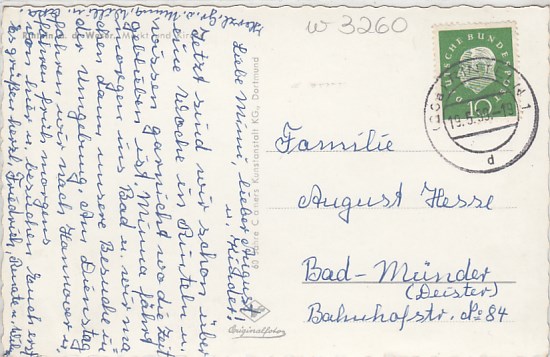 w 3260
DEUTSCHE BUNDESPOST
10
19.5.59
d
Rinteln a. d. Weser, Markt und Kirche
60 Jahre Cramers Kunstanstalt KG., Dortmund
Originalfoto
Familie
August Hesse
Bad-Münder
(Deister)
Bahnhofstr. No 84
Liebe Mimi, lieber August
u. Kinder!
Jetzt sind wir schon über
eine Woche in Rinteln u.
wissen garnicht wo die Zeit
geblieben ist. Muma fährt
morgens ins Bad u. wir machen
dann unsere Besuche in
der Umgebung. Am Dienstag
fahren wir nach Hannover u.
fahren früh morgens
von hier u. besuchen Euch erst
Es grüßen herzl. Friedrich, Renate u.
Herzl. Gr. u.